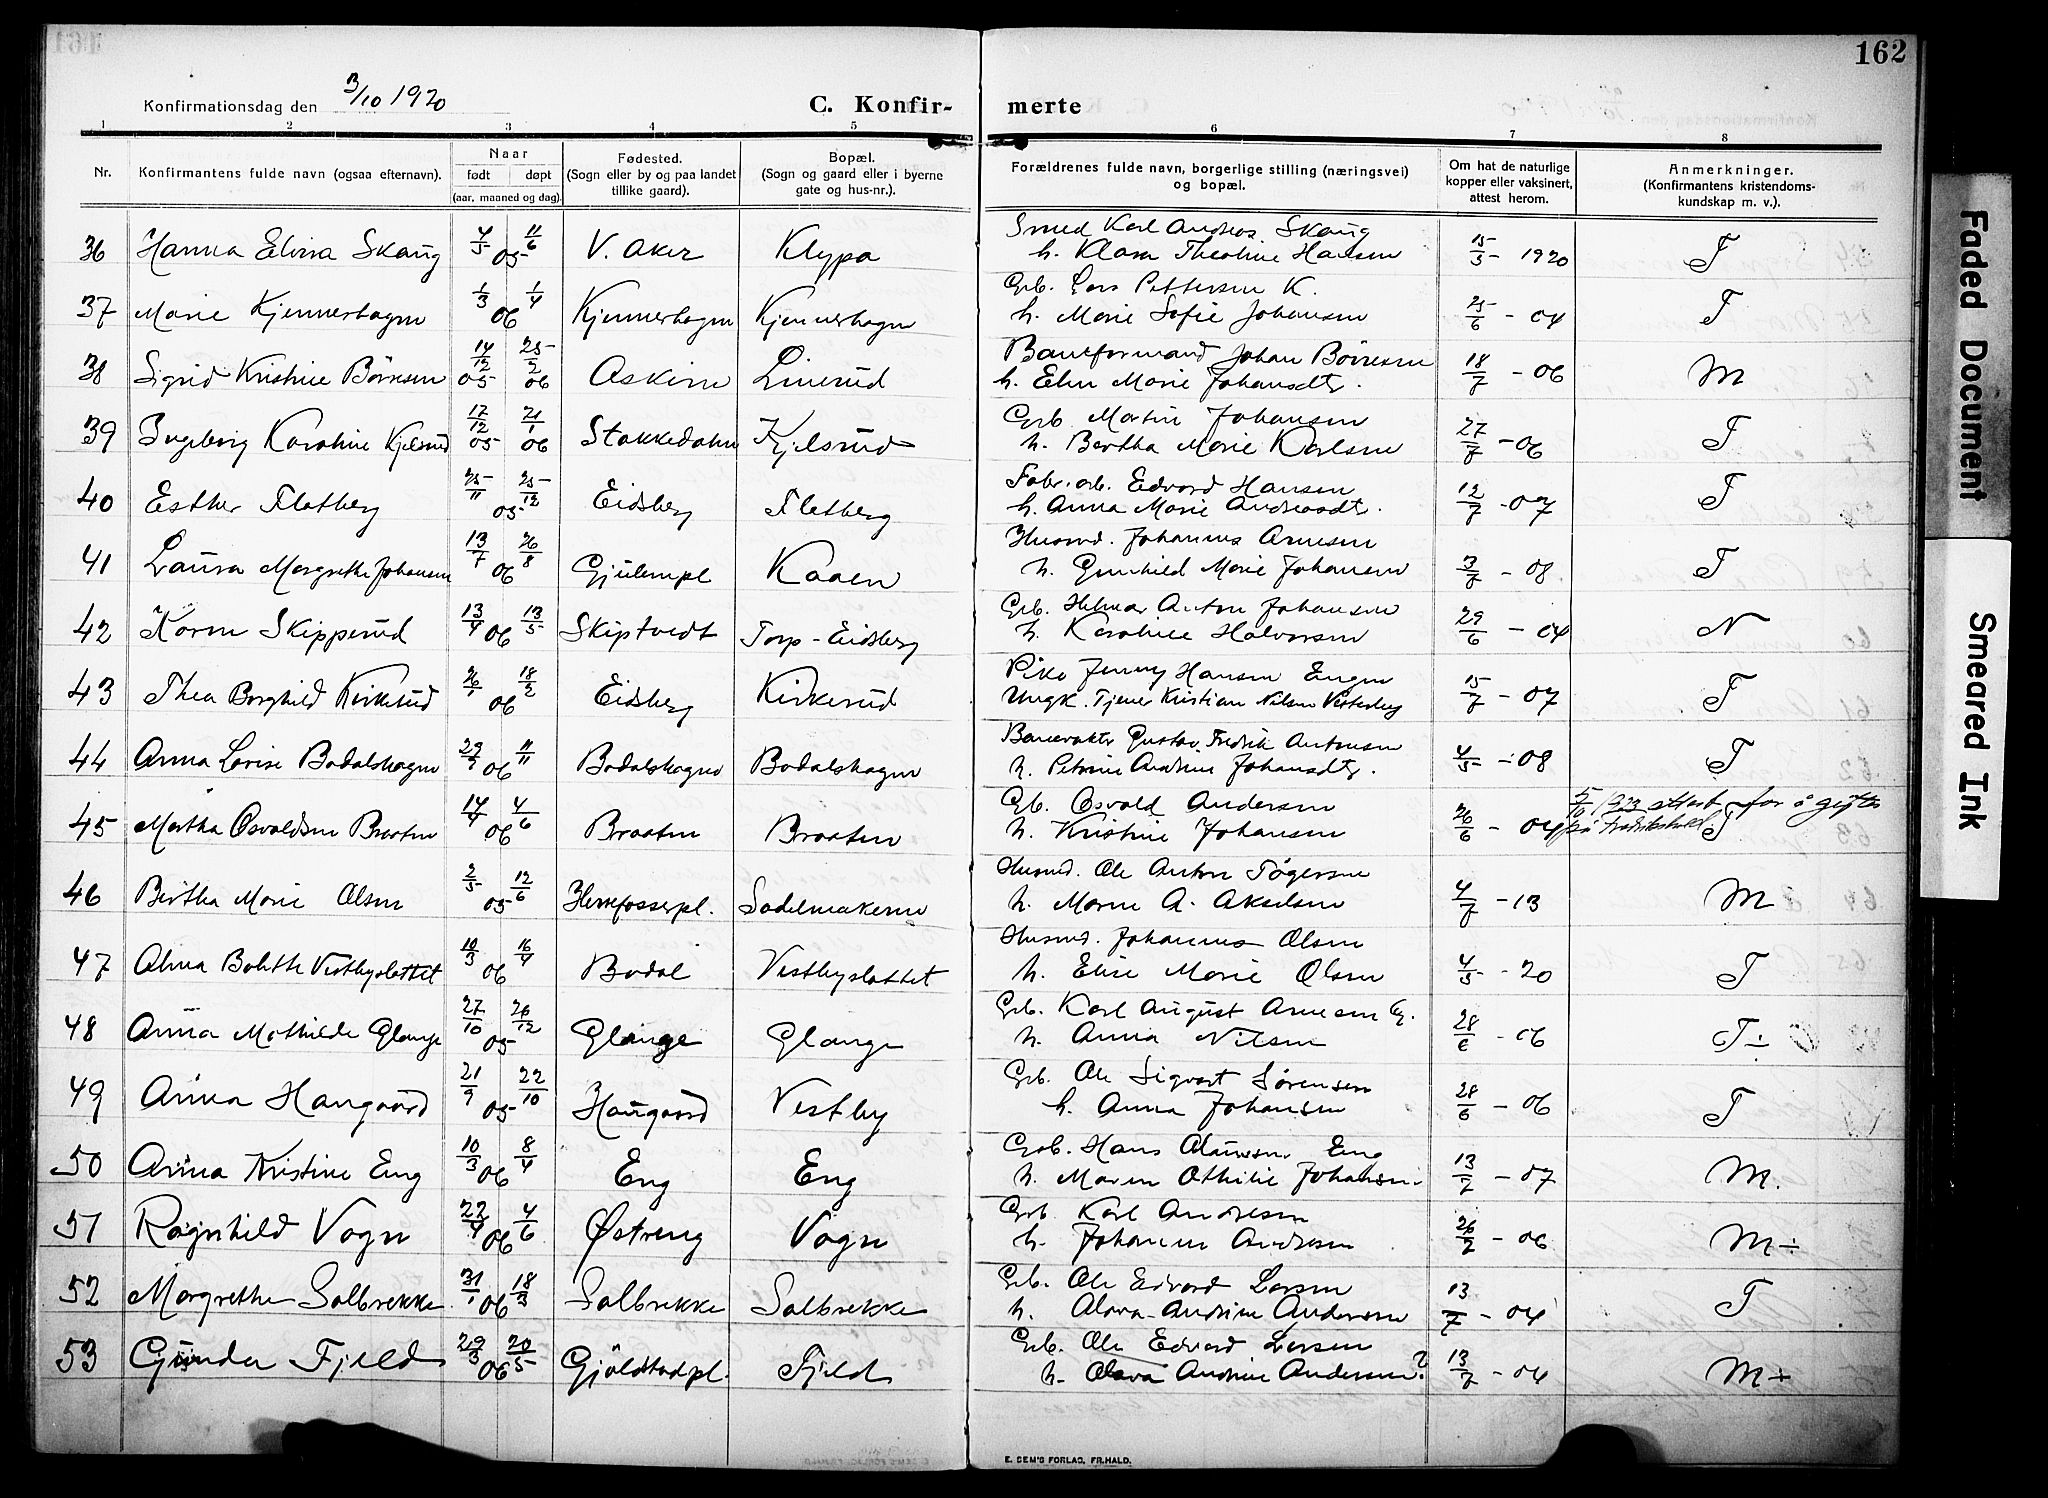 162
Konfirmationsdag den 3/10 1920
C. Konfirmerte
1 2 3 4 5 6 7 8
Nr. Konfirmantens fulde navn (ogsaa efternavn). Naar født døpt (aar, maaned og dag). Fødested. (Sogn eller by og paa landet tillike gaard). Bopæl. (Sogn og gaard eller i byerne gate og hus-nr.). Forældrenes fulde navn, borgerlige stilling (næringsvei) og bopæl. Om hat de naturlige kopper eller vaksinert, attest herom. Anmerkninger. (Konfirmantens kristendomskundskap m. v.).
36 Hanna Elvira Skaug 4/5 11/6 05 V. Aker Klypa Smed Karl Andreas Skaug h. Klara Theoline Hansen 15/5 - 1920 T
37 Marie Kjennerhagen 1/3 1/4 06 Kjennerhagen Kjennerhagen Grb. Lars Pettersen K. h. Marie Sofie Johansen 25/6 - 04 T
38 Sigrid Kristine Børresen 14/12 05 25/2 06 Askim Linerud Baneformand Johan Börresen h. Elen Marie Johansdtr. 18/7 - 06 M
39 Ingeborg Karoline Kjelsrud 17/12 05 21/1 06 Stakkedalen Kjelsrud Grb. Martin Johansen h. Bertha Marie Karlsen 27/7 - 06 T
40 Esther Fletberg 25/11 25/12 05 Eidsberg Fletberg Fabr. arb. Edvard Hansen h. Anna Marie Andreasdtr. 12/7 - 07 T
41 Laura Margrethe Johansen 13/7 26/8 06 Gjulempl Kaaen Husmd. Johannes Arnesen h. Gunhild Marie Johansen 3/7 - 08 T
42 Karen Skipperud 13/4 13/5 06 Skiptvedt Torp - Eidsberg Grb. Helmar Anton Johansen h. Karoline Halvorsen 29/6 - 04 N
43 Thea Borghild Kirkerud 26/1 18/2 06 Eidsberg Kirkerud Pike Jenny Hansen Engen Ungk. Tjener Kristian Nilsen Vesterberg 15/7 - 07 T
44 Anna Lovise Bodalshagen 29/9 11/11 06 Bodalshagen Bodalshagen Banevakter Gustav Fredrik Antonsen h. Petrine Andrine Johansdtr. 4/5 - 08 T
45 Martha Osvaldsen Braaten 14/4 4/6 06 Braaten Braaten Grb. Osvald Andersen h. Kristine Johansen 26/6 - 04 T
5/10 1923 attest for å giftes på Fredrikshald.
46 Bertha Marie Olsen 2/5 12/6 05 Herrefosserpl. Sadelmakeren Husmd. Ole Anton Tögersen h. Maren A. Akselsen 4/7 - 13 M
47 Alma Bolette Vestbyslettet 10/3 16/4 06 Bodal Vestbyslettet Husmd. Johannes Olsen h. Elise Marie Olsen 4/5 - 20 T
48 Anna Mathilde Glange 27/10 26/12 05 Glange Glange Grb. Karl August Arnesen G. h. Anna Nilsen 28/6 - 06 T÷
49 Anna Haugaard 21/9 22/10 05 Haugaard Vestby Grb. Ole Sigvart Sörensen h. Anna Johansen 28/6 - 06 T
50 Anna Kristine Eng 10/3 8/4 06 Eng Eng Grb. Hans Eng h. Maren Othilie Johansen 13/7 - 07 M.
51 Ragnhild Vogn 22/4 4/6 06 Østreng Vogn Grb. Karl Andresen h. Johanne Andresen 26/7 - 06 M÷
52 Margrethe Solbrekke 31/1 18/3 06 Solbrekke Solbrekke Grb. Ole Edvard Larsen h. Olava Andrine Andersen 13/7 - 04 T
53 Gunda Fjeld 29/3 20/5 06 Gjölstadpl. Fjeld Grb. Ole Edvard Larsen h. Olava Andrine Andersen? 13/7 - 04 M÷
E. SEM'S FORLAG, FR.HALD.
Faded Document
Smeared Ink